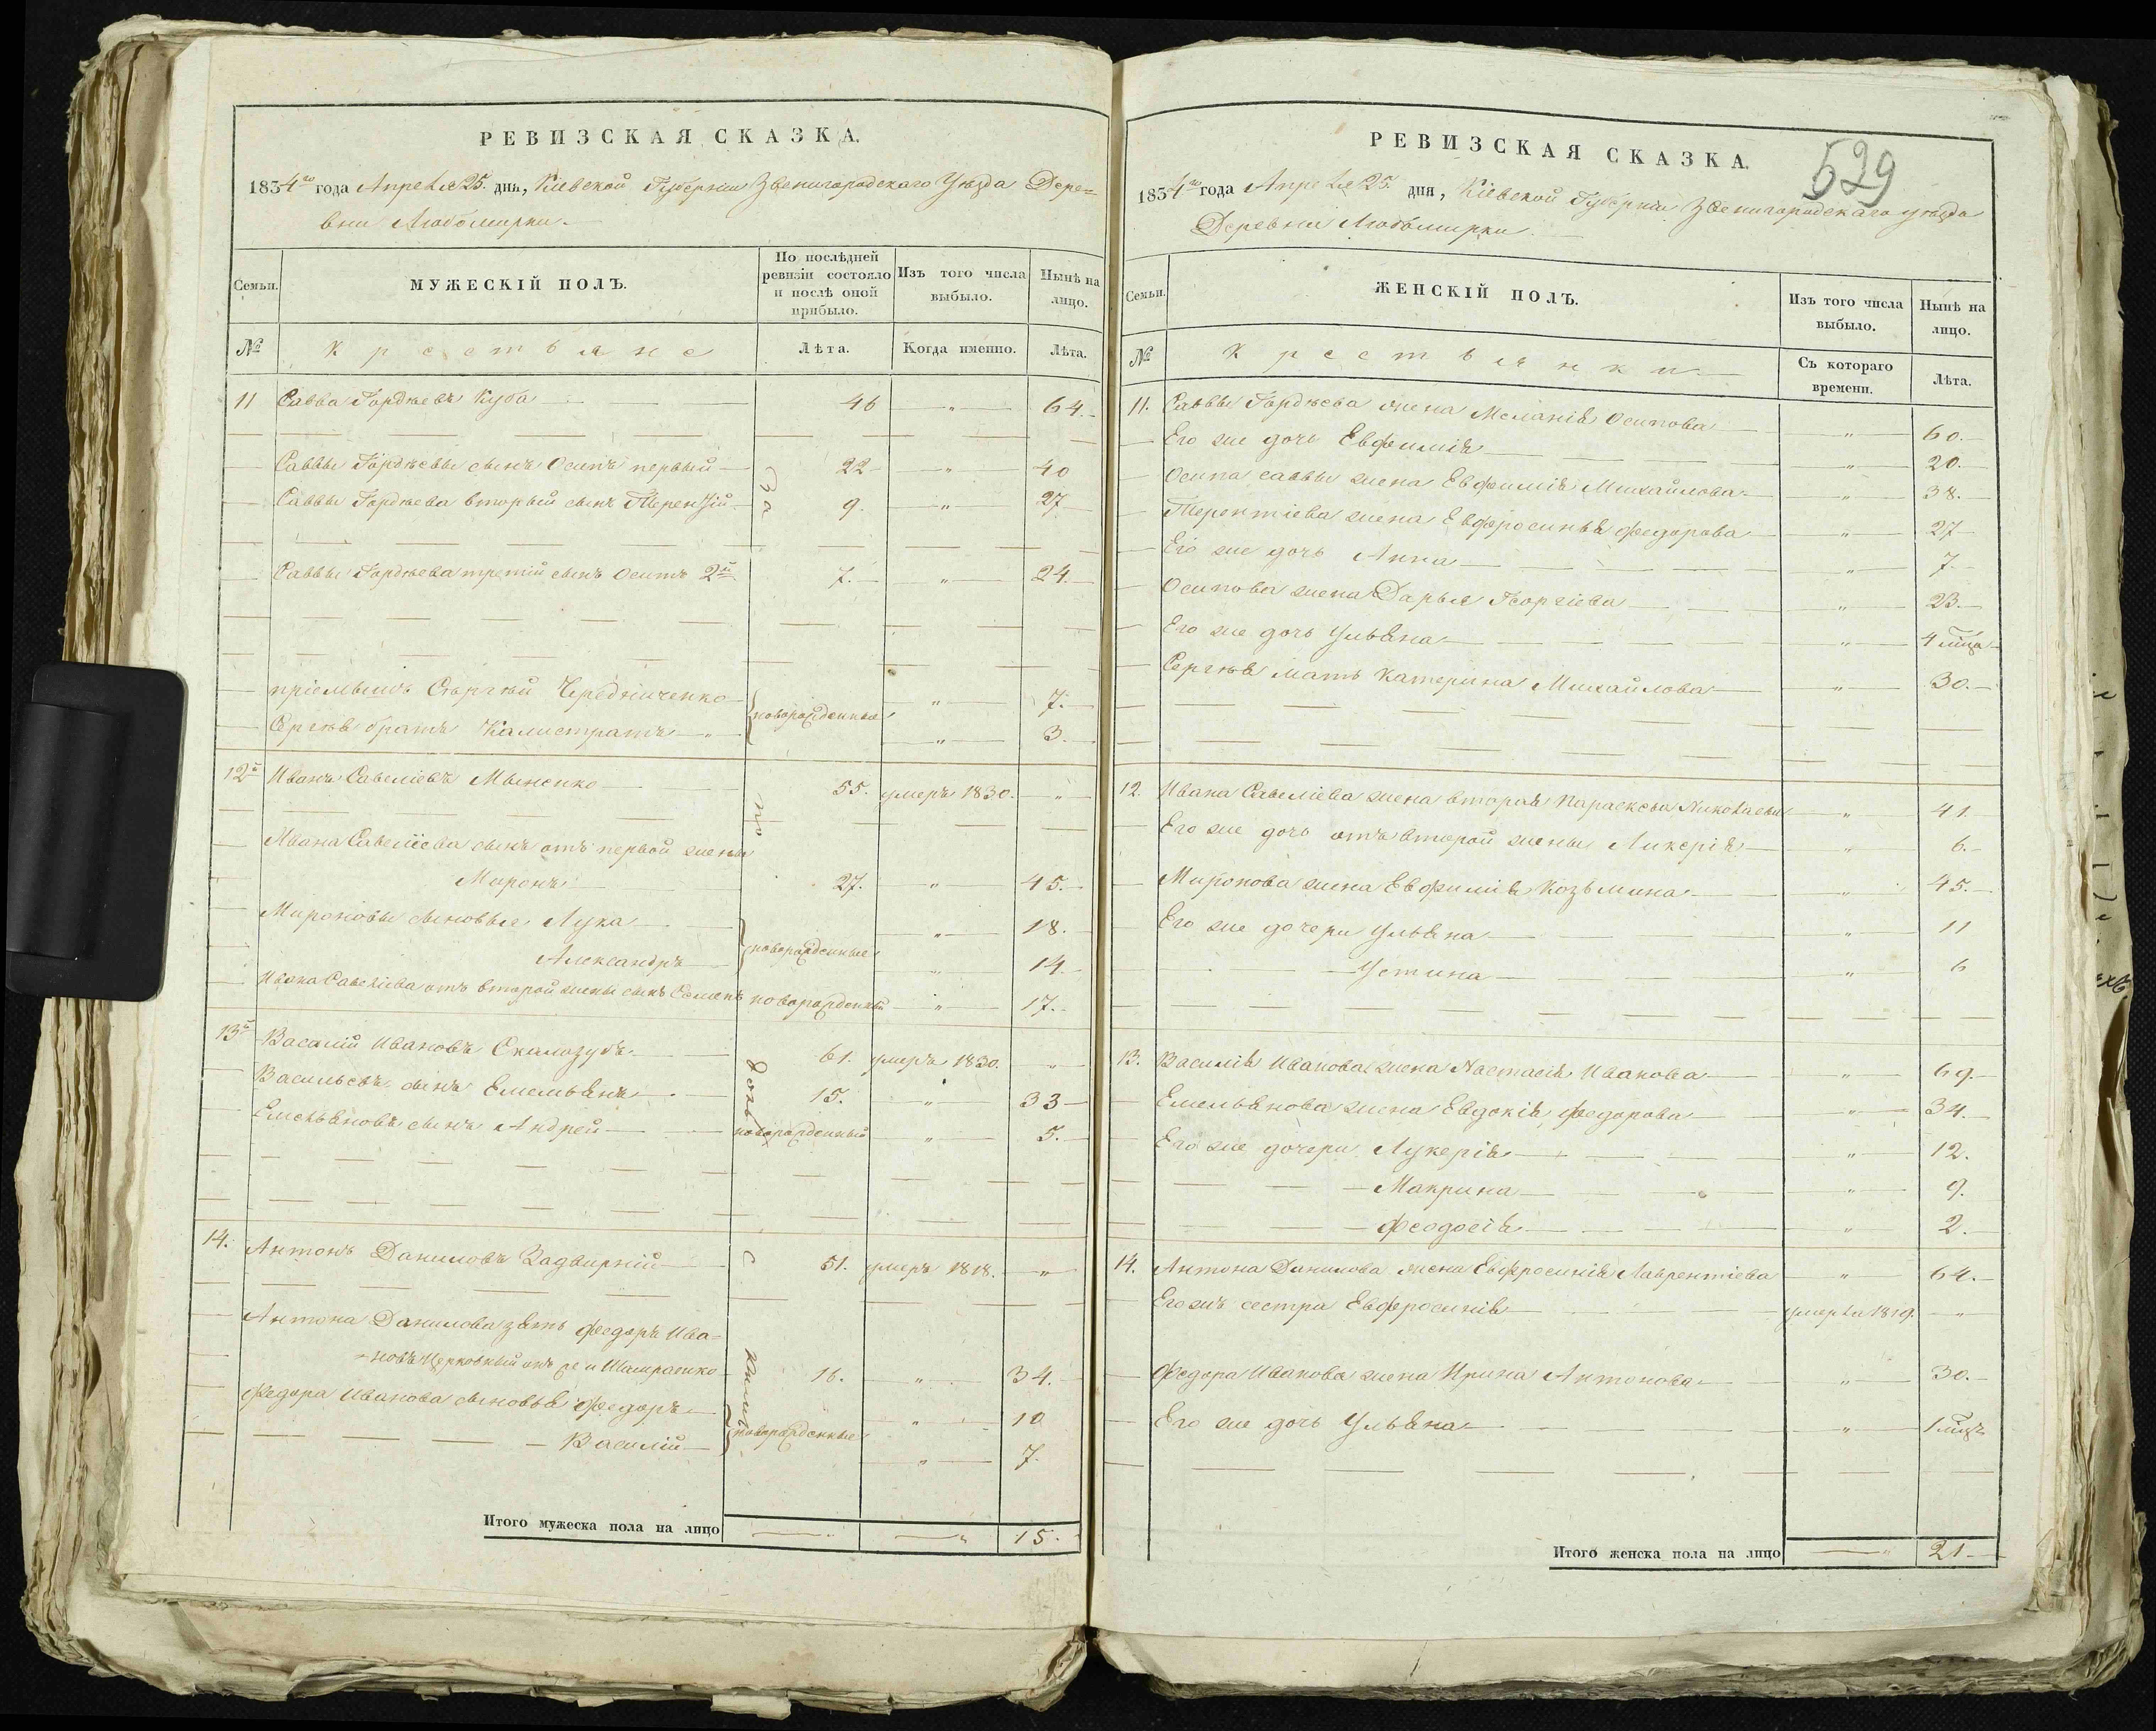 РЕВИЗСКАЯ СКАЗКА.
1834го года Апреля 25. дня, Кіевской Губерніи Звенигородскаго Уѣзда Дере=
вни Любомирки.
Семьи.
МУЖЕСКІЙ ПОЛЪ.
По послѣдней ревизіи состояло и послѣ оной прибыло.
Изъ того числа выбыло.
Нынѣ на лицо.
№ Крестьяне Лѣта. Когда именно. Лѣта.
11 Савва Гордѣевъ Куба 46 " 64.
Саввы Гордѣевы сынъ Осипъ первый 22 " 40
Саввы Гордѣева вторый сынъ Терентій 9. " 27
За
Саввы Гордѣева третій сынъ Осипъ 2й 7. " 24.
пріемышъ Сергѣй Чередниченко новорожденные " 7.
Сергѣя братъ Калистратъ " 3.
12й Иванъ Савеліевъ Мыненко 55. умеръ 1830. "
Ивана Савеліева сынъ отъ первой жены
Миронъ 27. " 45.
Мироновы сыновья Лука новорожденные " 18.
Александръ " 14.
Ивана Савеліева отъ второй жены сынъ Семенъ новорожденный " 17.
13й Василій Ивановъ Скалозубъ 61. умеръ 1830. "
Васильевъ сынъ Емельянъ 15. " 33
Емельяновъ сынъ Андрей новорожденный " 5.
14. Антонъ Даниловъ Задвирній 51. умеръ 1818. "
Антона Данилова зять Федоръ Ива=
новъ Церковный онъ же и Шамраенко 16. " 34.
Федора Иванова сыновья Федоръ новорожденные " 10
Василій " 7.
Итого мужеска пола на лицо " " 15.
РЕВИЗСКАЯ СКАЗКА.
529
1834го года Апреля 25. дня, Кіевской Губерніи Звенигородскаго уѣзда
Деревни Любомирки.
Семьи.
ЖЕНСКІЙ ПОЛЪ.
Изъ того числа выбыло.
Нынѣ на лицо.
№ Крестьянки Съ котораго времени. Лѣта.
11. Саввы Гордѣева жена Меланія Осипова " 60.
Его же дочь Евфимія " 20.
Осипа саввы жена Евфимія Михайлова " 38.
Терентіева жена Евфросинья Федорова " 27
Его же дочь Анна " 7.
Осипова жена Дарья Георгіева " 23.
Его же дочь Ульяна " 4 мца
Сергѣя мать Катерина Михайлова " 30.
12. Ивана Савеліева жена вторая Параскева Николаева " 41.
Его же дочь отъ второй жены Ликерія " 6.
Миронова жена Евфимія Козьмина " 45.
Его же дочери Ульяна " 11
Устина " 6
13. Василія Иванова жена Настасія Иванова " 69.
Емельянова жена Евдокія Федорова " 34.
Его же дочери Лукерія " 12.
Макрина " 9.
Феодосія " 2.
14. Антона Данилова жена Евфросинія Лаврентіева " 64.
Егожъ сестра Евфросинія умерла 1819. "
Федора Иванова жена Ирина Антонова " 30.
Его же дочь Ульяна " 1 мцъ
Итого женска пола на лицо " 21